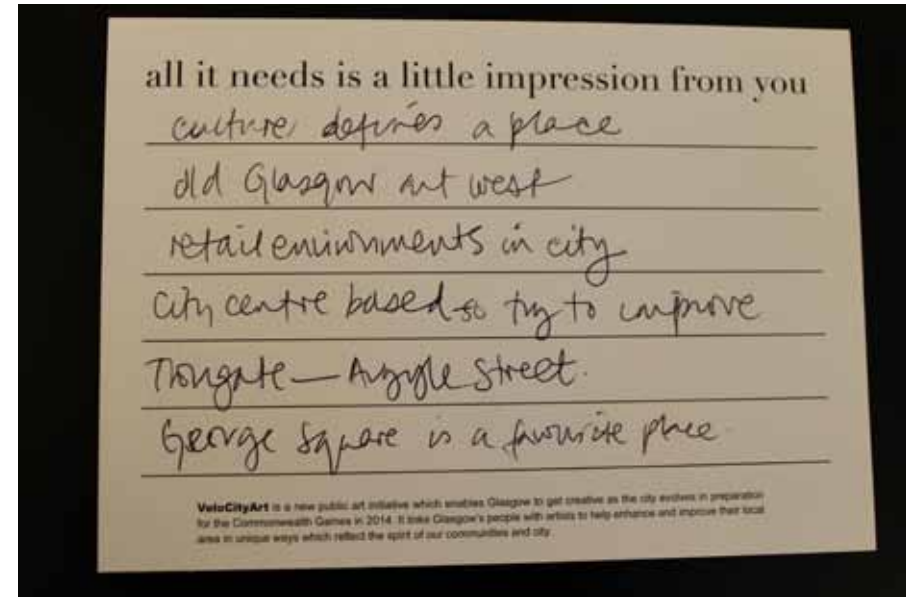 all it needs is a little impression from you
culture defines a place
old Glasgow art west
retail environments in city
City centre based so try to improve
Trongate — Argyle Street.
George Square is a favourite place.
VeloCityArt is a new public art initiative which enables Glasgow to get creative as the city evolves in preparation
for the Commonwealth Games in 2014. It links Glasgow's people with artists to help enhance and improve their local
area in unique ways which reflect the spirit of our communities and city.